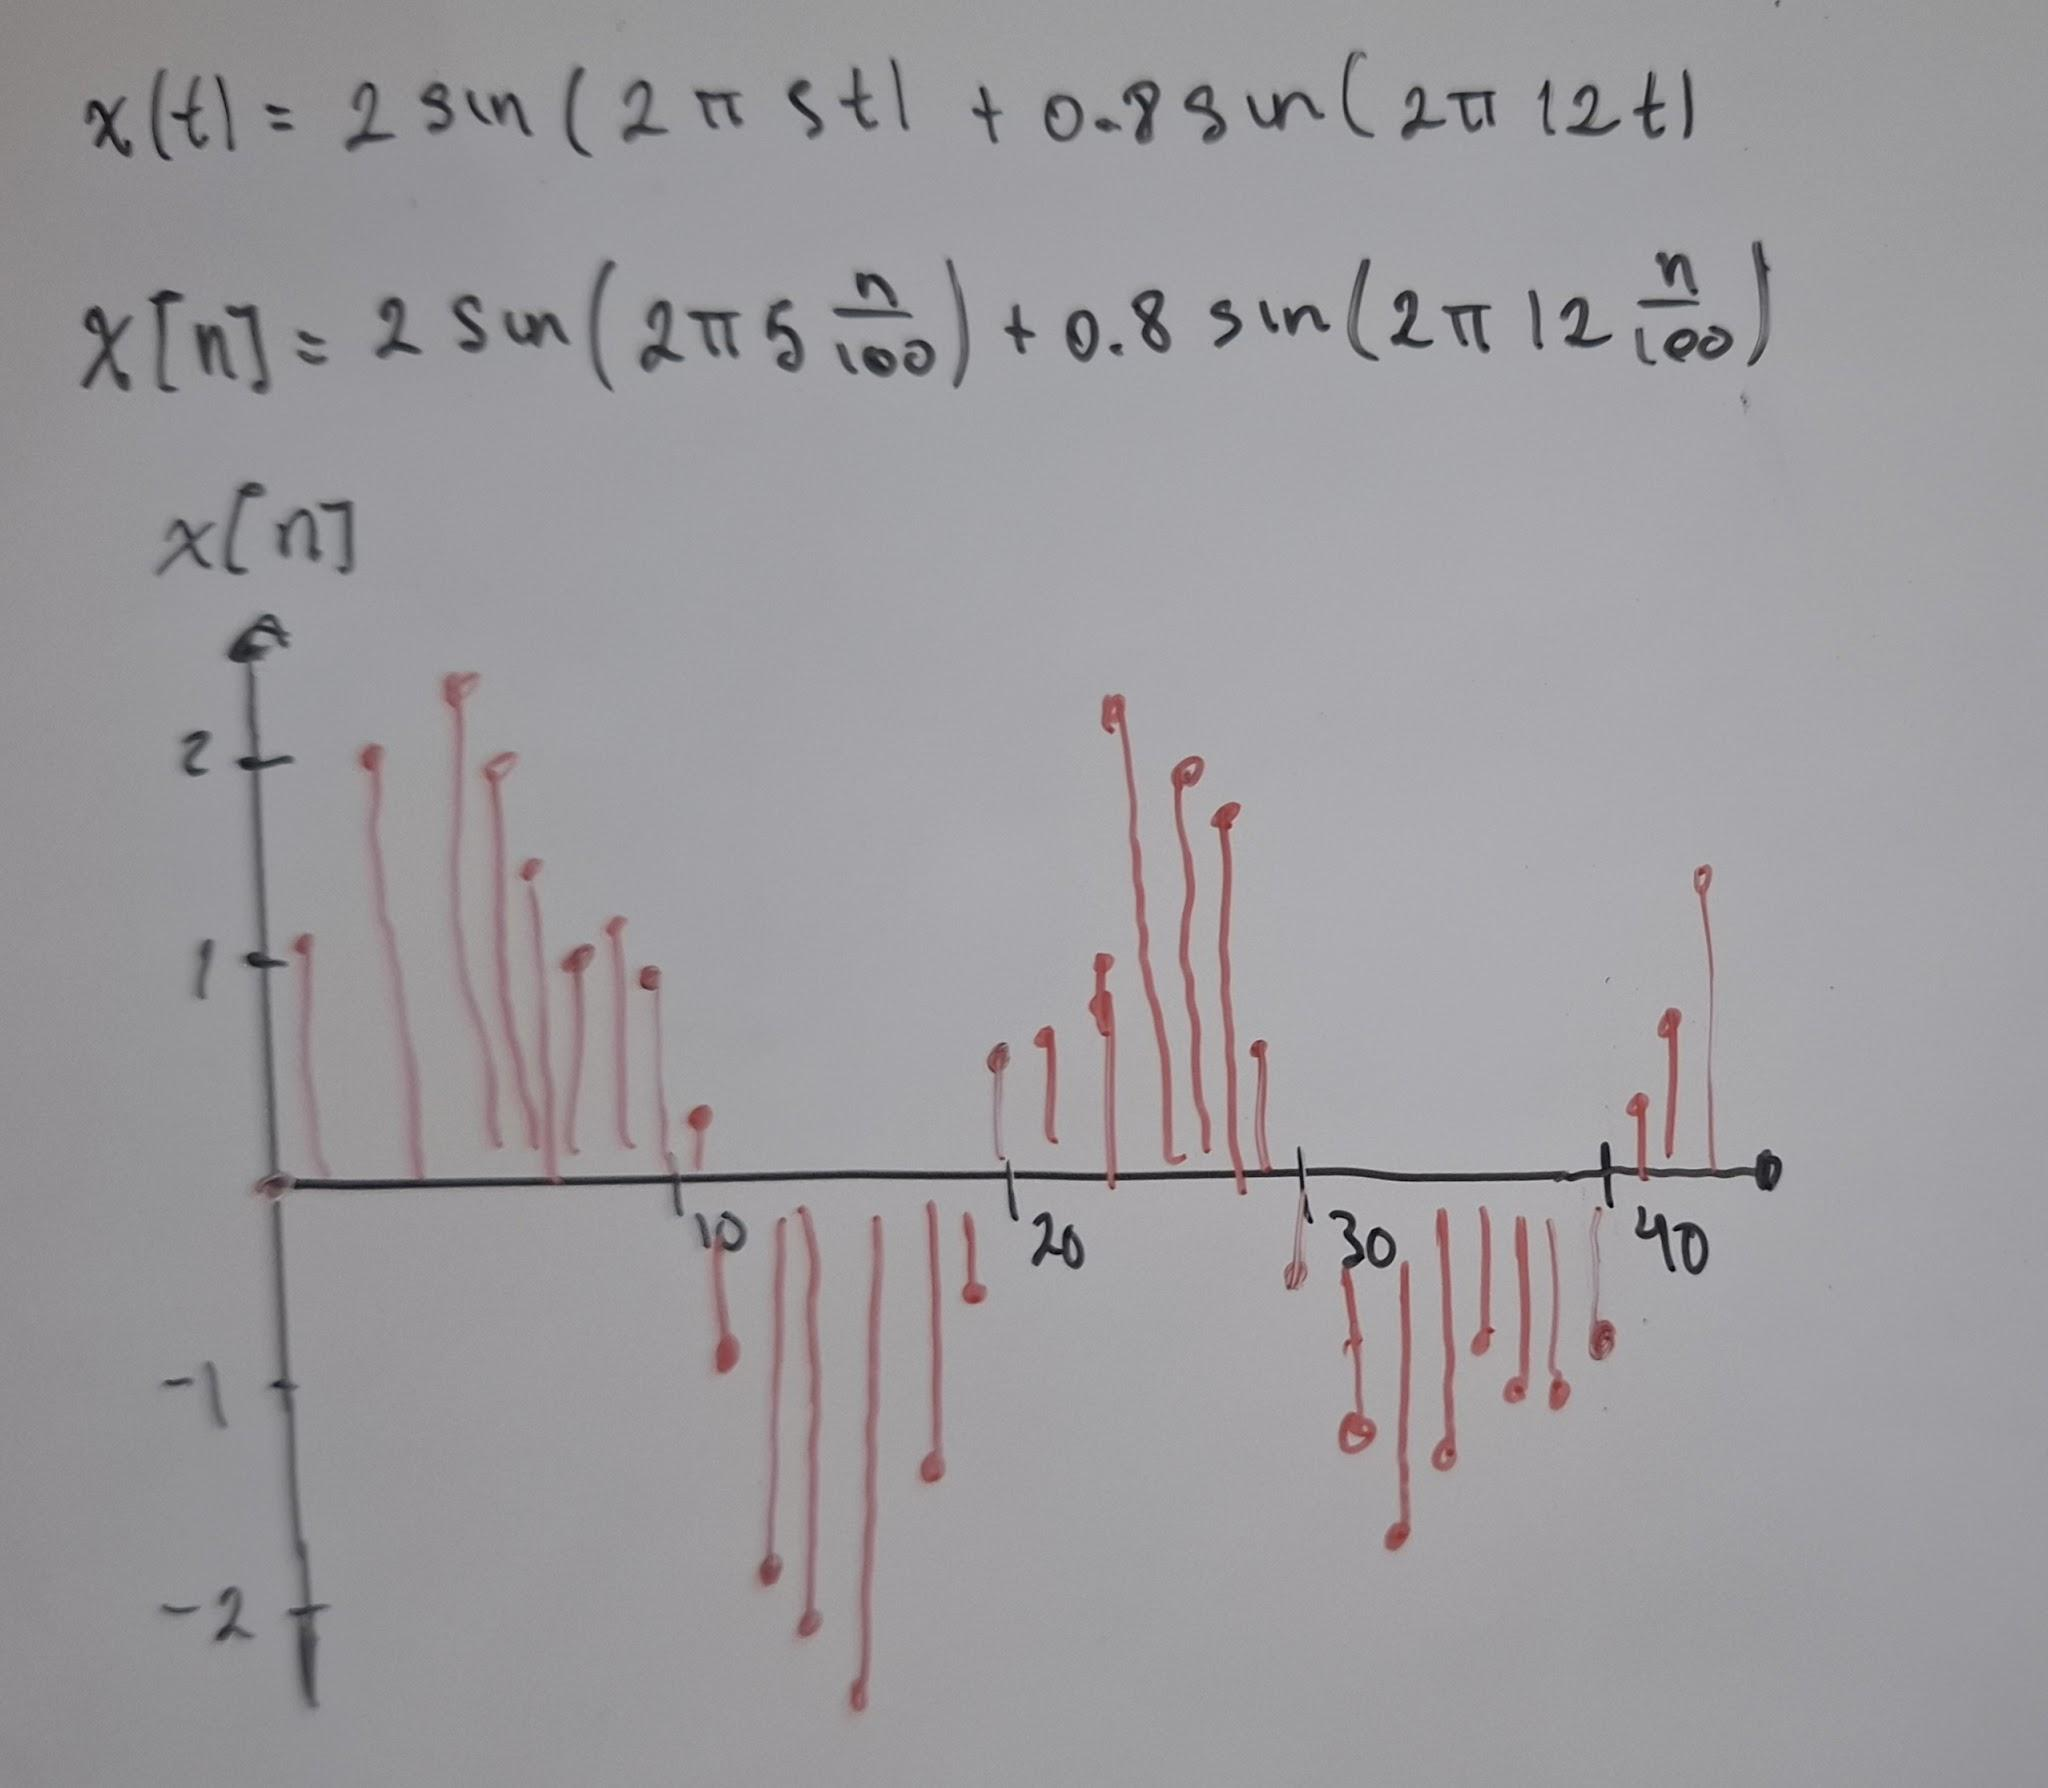 x(t) = 2 sin(2π 5t) + 0.8 sin(2π 12t)
x[n] = 2 sin(2π5 n/100) + 0.8 sin(2π 12 n/100)
x[n]
2
1
10 20 30 40
-1
-2